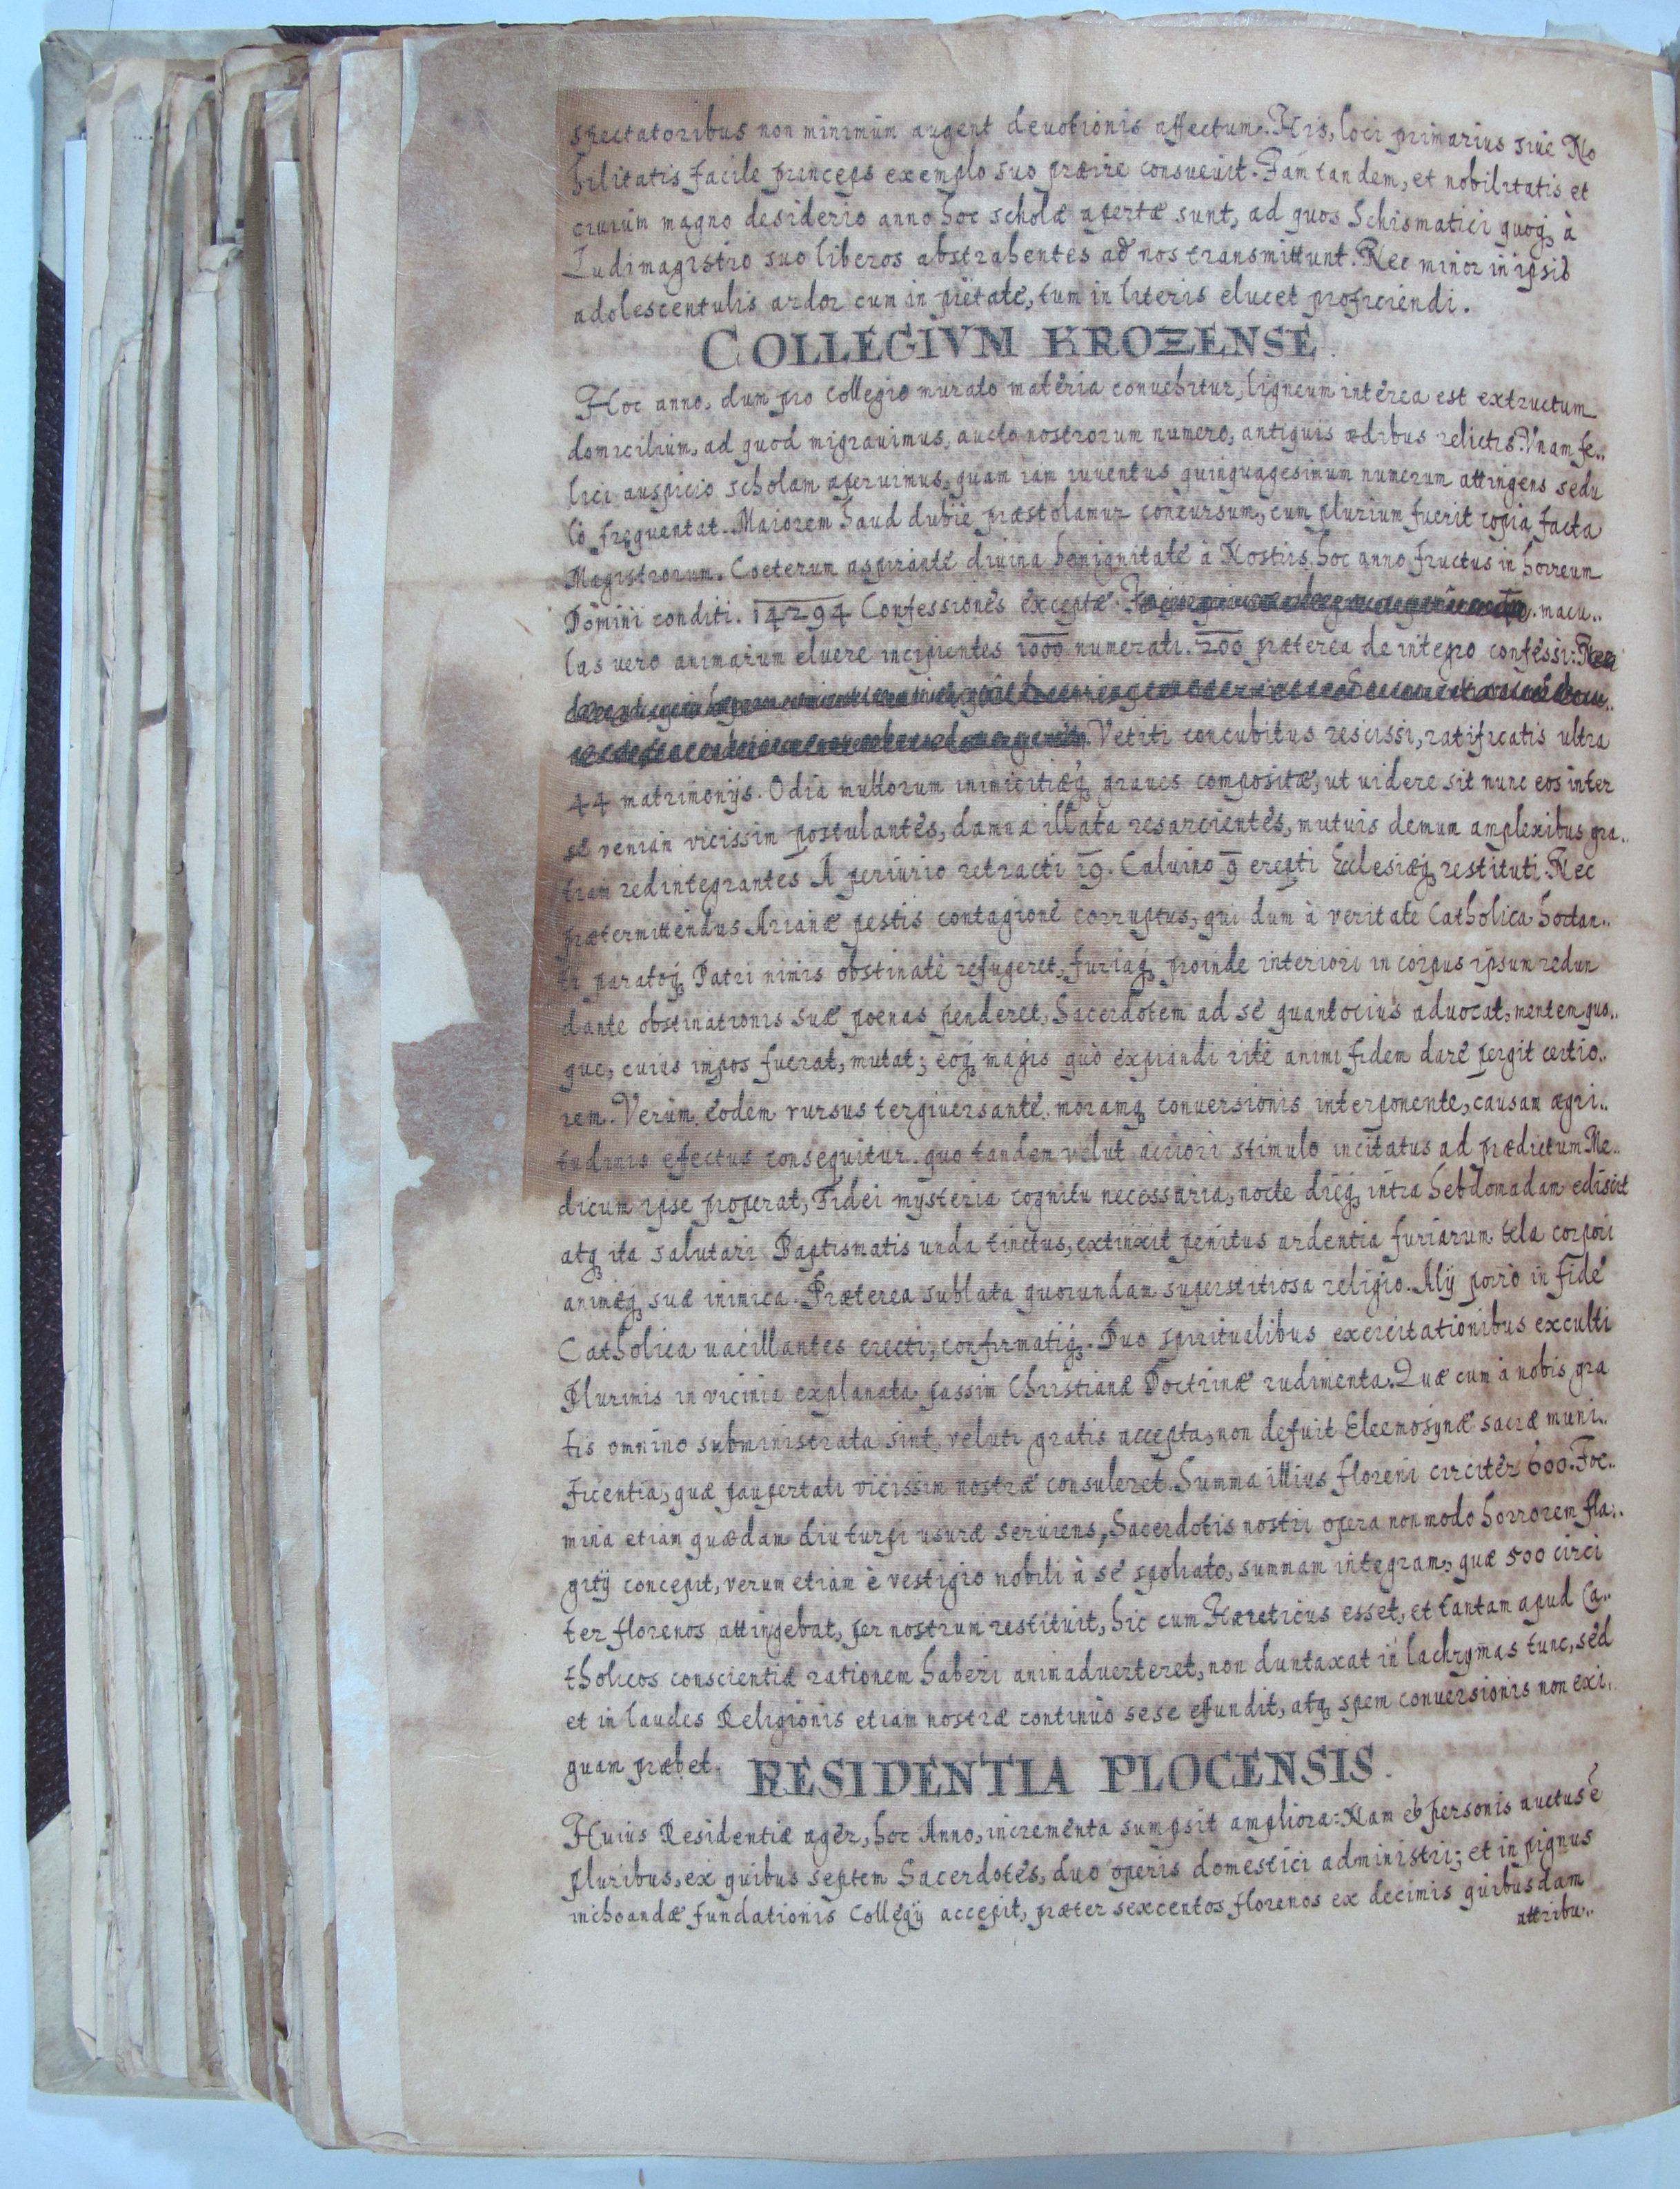 spectatoribus non minimùm augent deuotionis affectum. His, loci primarius siue No
bilitatis facile princeps exemplo suo præire consueuit. Iam tandem, et nobilitatis et
ciuium magno desiderio anno hoc scholæ apertæ sunt, ad quos Schismatici quoq, à
Ludimagistro suo liberos abstrahentes ad nos transmittunt. Nec minor in ipsis
adolescentulis ardor cum in pietate, tum in literis elucet proficiendi.
COLLEGIVM KROZENSE.
Hoc anno, dum pro Collegio murato materia conuehitur, ligneum interea est extructum
domicilium, ad quod migrauimus, aucto nostrorum numero, antiquis ædibus relictis. Vnam fe..
lici auspicio scholam aperuimus, quam iam iuuentus quinquagesimum numerum attingens sedu
lò frequentat. Maiorem haud dubie præstolamur concursum, cum plurium fuerit copia facta
Magistrorum. Coeterum aspirante diuina benignitate à Nostris hoc anno fructus in horreum
Domini conditi. 14294 Confessiones exceptæ. macu..
las vero animarum eluere incipientes 1000 numerati. 200 præterea de integro confessi:
Vetiti concubitus rescissi, ratificatis ultra
44 matrimonijs. Odia multorum inimicitiæq, graues compositæ, ut uidere sit nunc eos inter
se veniàm vicissim postulantes, damna illata resarcientes, mutuis demum amplexibus gra..
tiam redintegrantes A periurio retracti 19. Caluino 9 erepti Ecclesiæq, restituti. Nec
prætermittendus Arianæ pestis contagione corruptus, qui dum à veritate Catholica hortan..
ti paratoq, Patri nimis obstinatè refugeret, furiaq, proinde interiori in corpus ipsum redun
dante obstinationis suæ poenas penderet, Sacerdotem ad se quantocius aduocat, mentem qus..
que, cuius impos fuerat, mutat; eoq, magis quò expiandi ritè animi fidem dare pergit certio..
rem. Verùm eodem rursus tergiuersante, moramq, conuersionis interponente, causam ægri..
tudinis efectus consequitur. quo tandem velut acriori stimulo incitatus ad prædictum Me..
dicum ipse properat, Fidei mysteria cognitu necessaria, nocte dieq, intra hebdomadam ediscit
atq, ita salutari Baptismatis unda tinctus, extinxit penitus ardentia furiarum tela corpori
animæq, suæ inimica. Præterea sublata quorundam superstitiosa religio. Alij porrò in fide
Catholica uacillantes erecti, confirmatiq,. Duo spiritualibus exercitationibus exculti
Plurimis in vicinia explanata passim Christianæ Doctrinæ rudimenta. Quæ cum à nobis gra
tis omnino subministrata sint, veluti gratis accepta, non defuit Eleemosynæ sacræ muni..
ficentia, quæ paupertati vicissim nostræ consuleret. Summa illius floreni circiter 600. Foe..
mina etiam quædam diu turpi usuræ seruiens, Sacerdotis nostri opera non modo horrorem fla..
gitij concepit, verum etiam è vestigio nobili à se spoliato, summam integram, quæ 500 circi
ter florenos attingebat, per nostrum restituit, hic cum Hæreticus esset, et tantam apud Ca..
tholicos conscientiæ rationem haberi animaduerteret, non duntaxat in lachrymas tunc, sed
et in laudes Religionis etiam nostræ continùo sese efundit, atq, spem conuersionis non exi..
guam præbet.
RESIDENTIA PLOCENSIS.
Huius Residentiæ ager, hoc Anno, incrementa sumpsit ampliora: Nam et personis auctus e
pluribus, ex quibus septem Sacerdotes, duo operis domestici administri; et in pignus
inchoandæ fundationis Collegij accepit, præter sexcentos florenos ex decimis quibusdam
attribu..